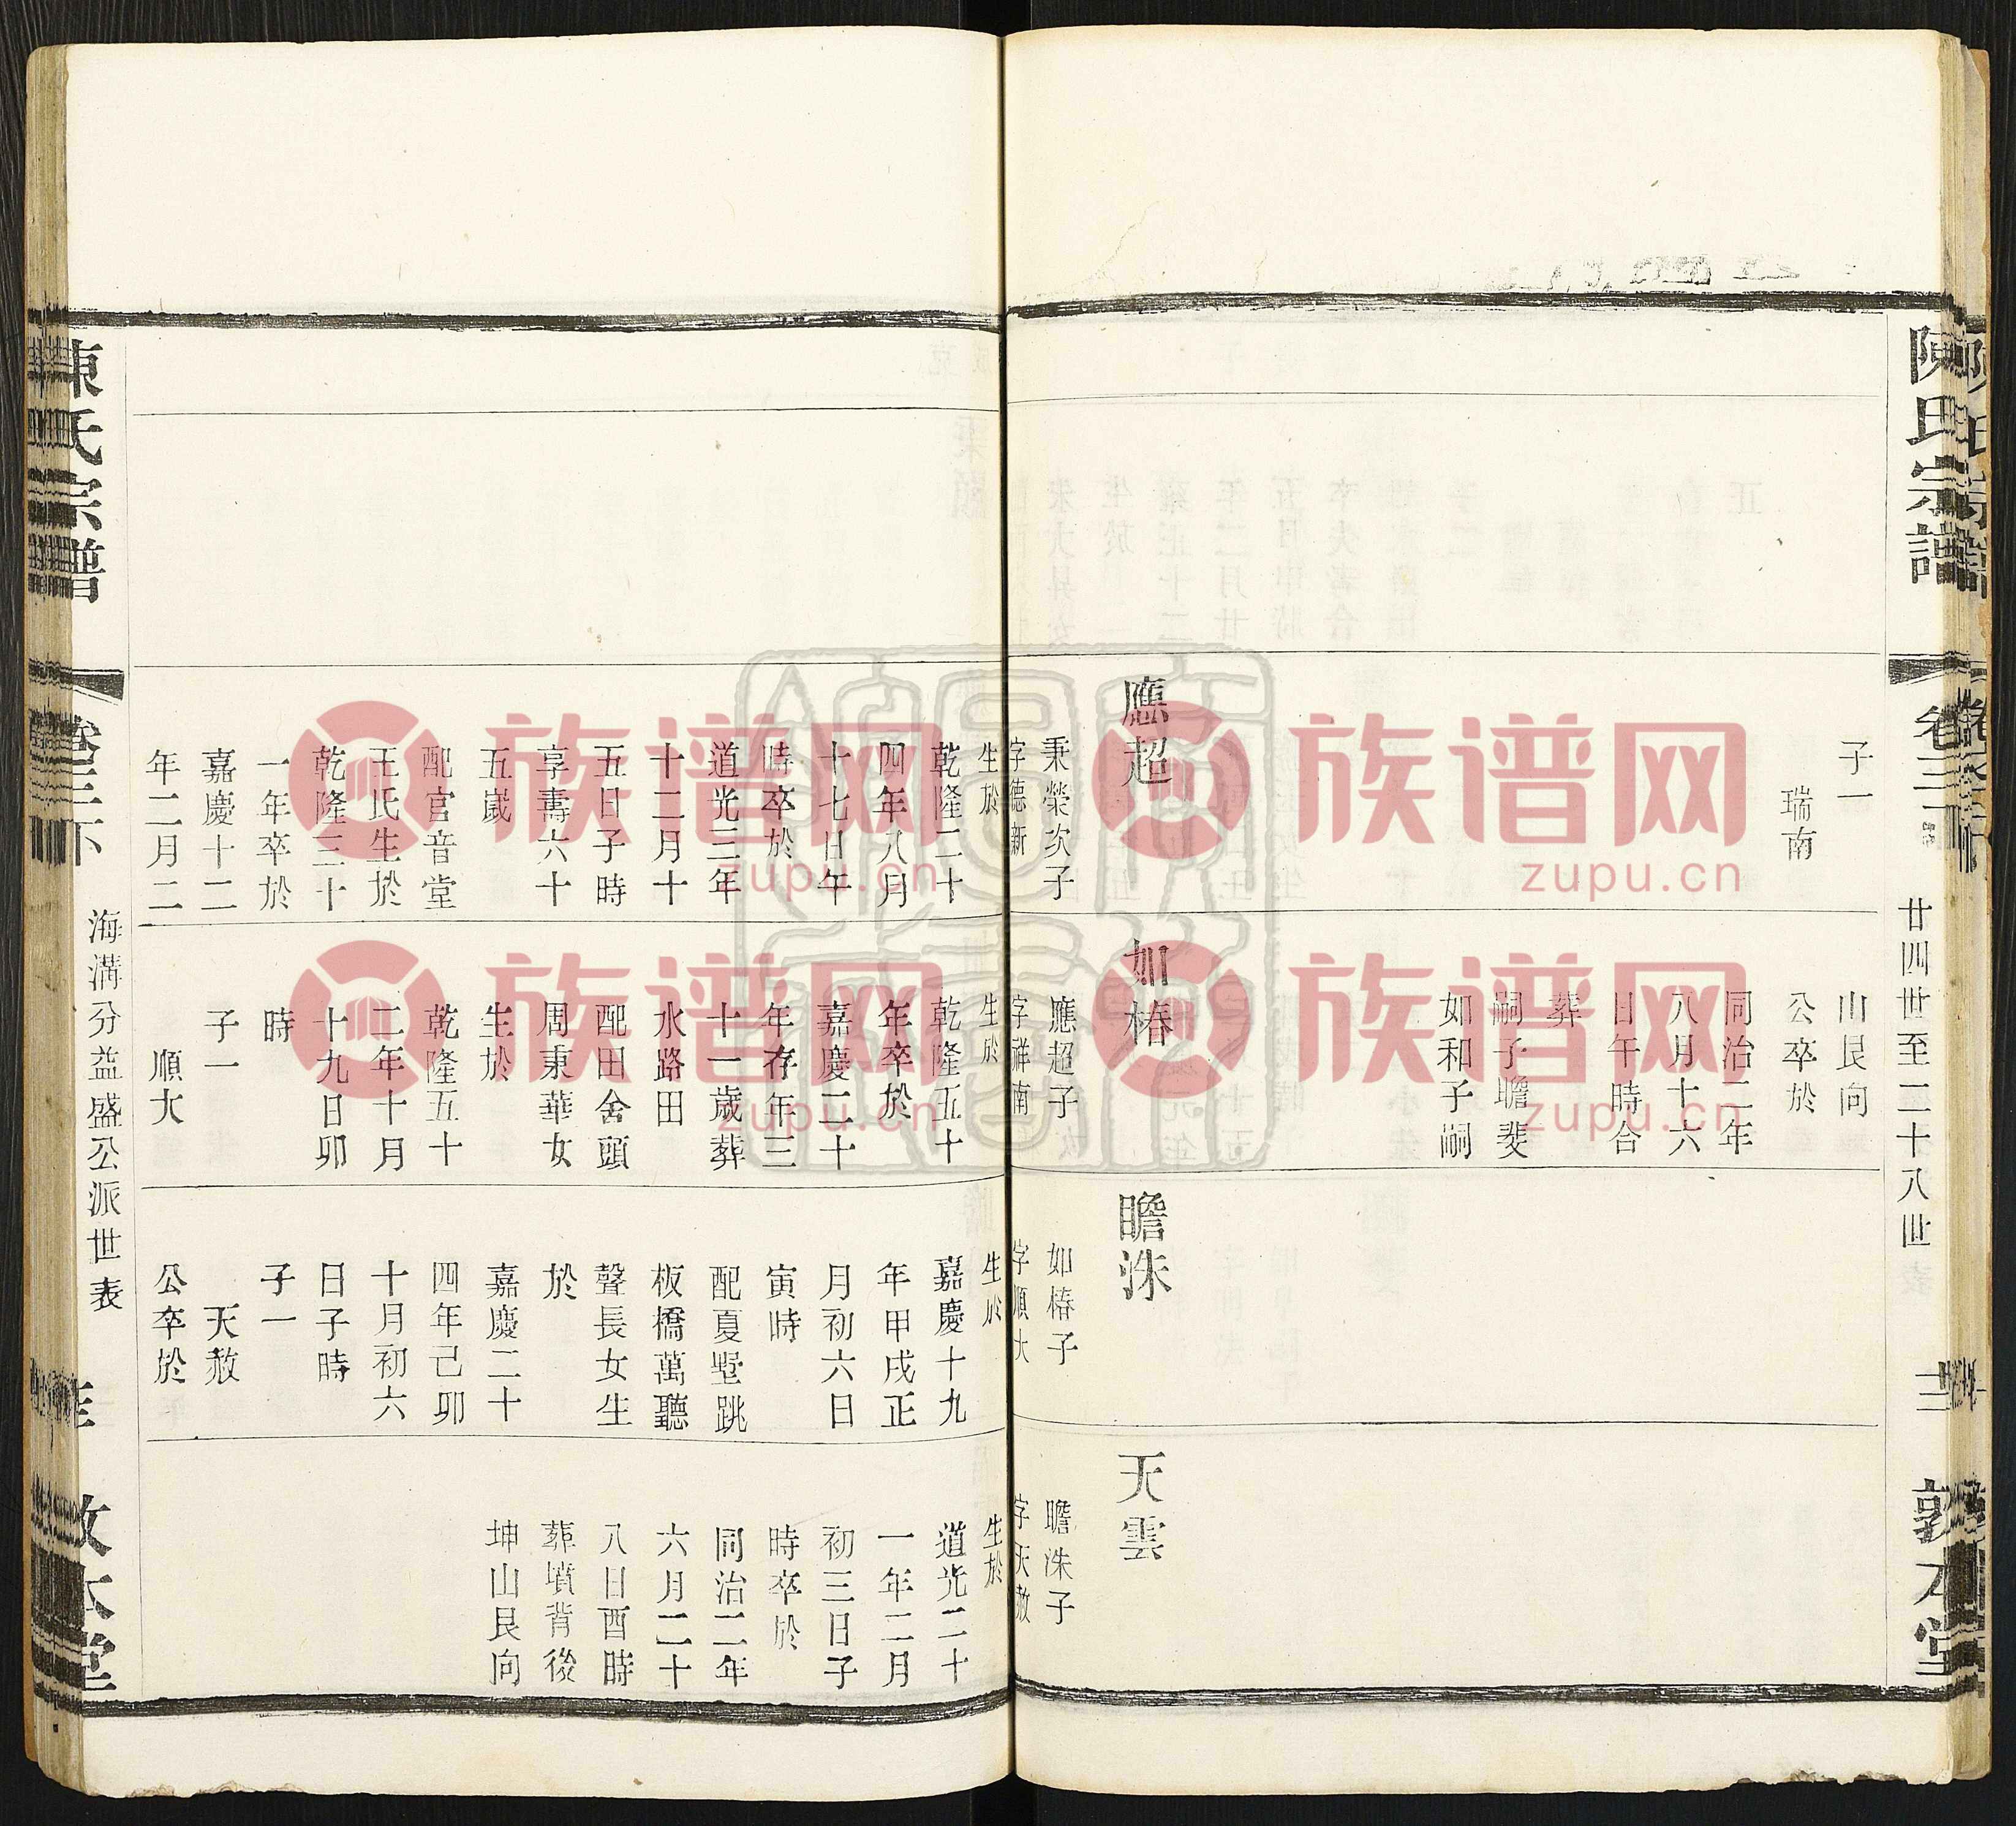 陳氏宗譜
卷三下
廿四世至二十八世
敦本堂
子一
瑞南
應超
秉榮次子
字德新
生於
乾隆二十
四年八月
十七日午
時卒於
道光三年
十二月十
五日子時
享壽六十
五歲
配官音堂
王氏生於
乾隆三十
一年卒於
嘉慶十二
年二月二
山艮向
公卒於
同治二年
八月十六
日午時合
葬
嗣子瞻斐
如和子嗣
如椿
應超子
字祥南
生於
乾隆五十
年卒於
嘉慶二十
年存年三
十一歲葬
水路田
配田舍頭
周東華女
生於
乾隆五十
二年十月
十九日卯
時
子一
順大
瞻洙
如椿子
字順大
生於
嘉慶十九
年甲戌正
月初六日
寅時
配夏墅跳
板橋萬聽
聲長女生
於
嘉慶二十
四年己卯
十月初六
日子時
子一
天赦
公卒於
天雲
瞻洙子
字天赦
生於
道光二十
一年二月
初三日子
時卒於
同治二年
六月二十
八日酉時
葬墳背後
坤山艮向
陳氏宗譜
卷三下
海溝分益盛公派世表
敦本堂
族谱网
zupu.cn
族谱网
zupu.cn
族谱网
zupu.cn
族谱网
zupu.cn